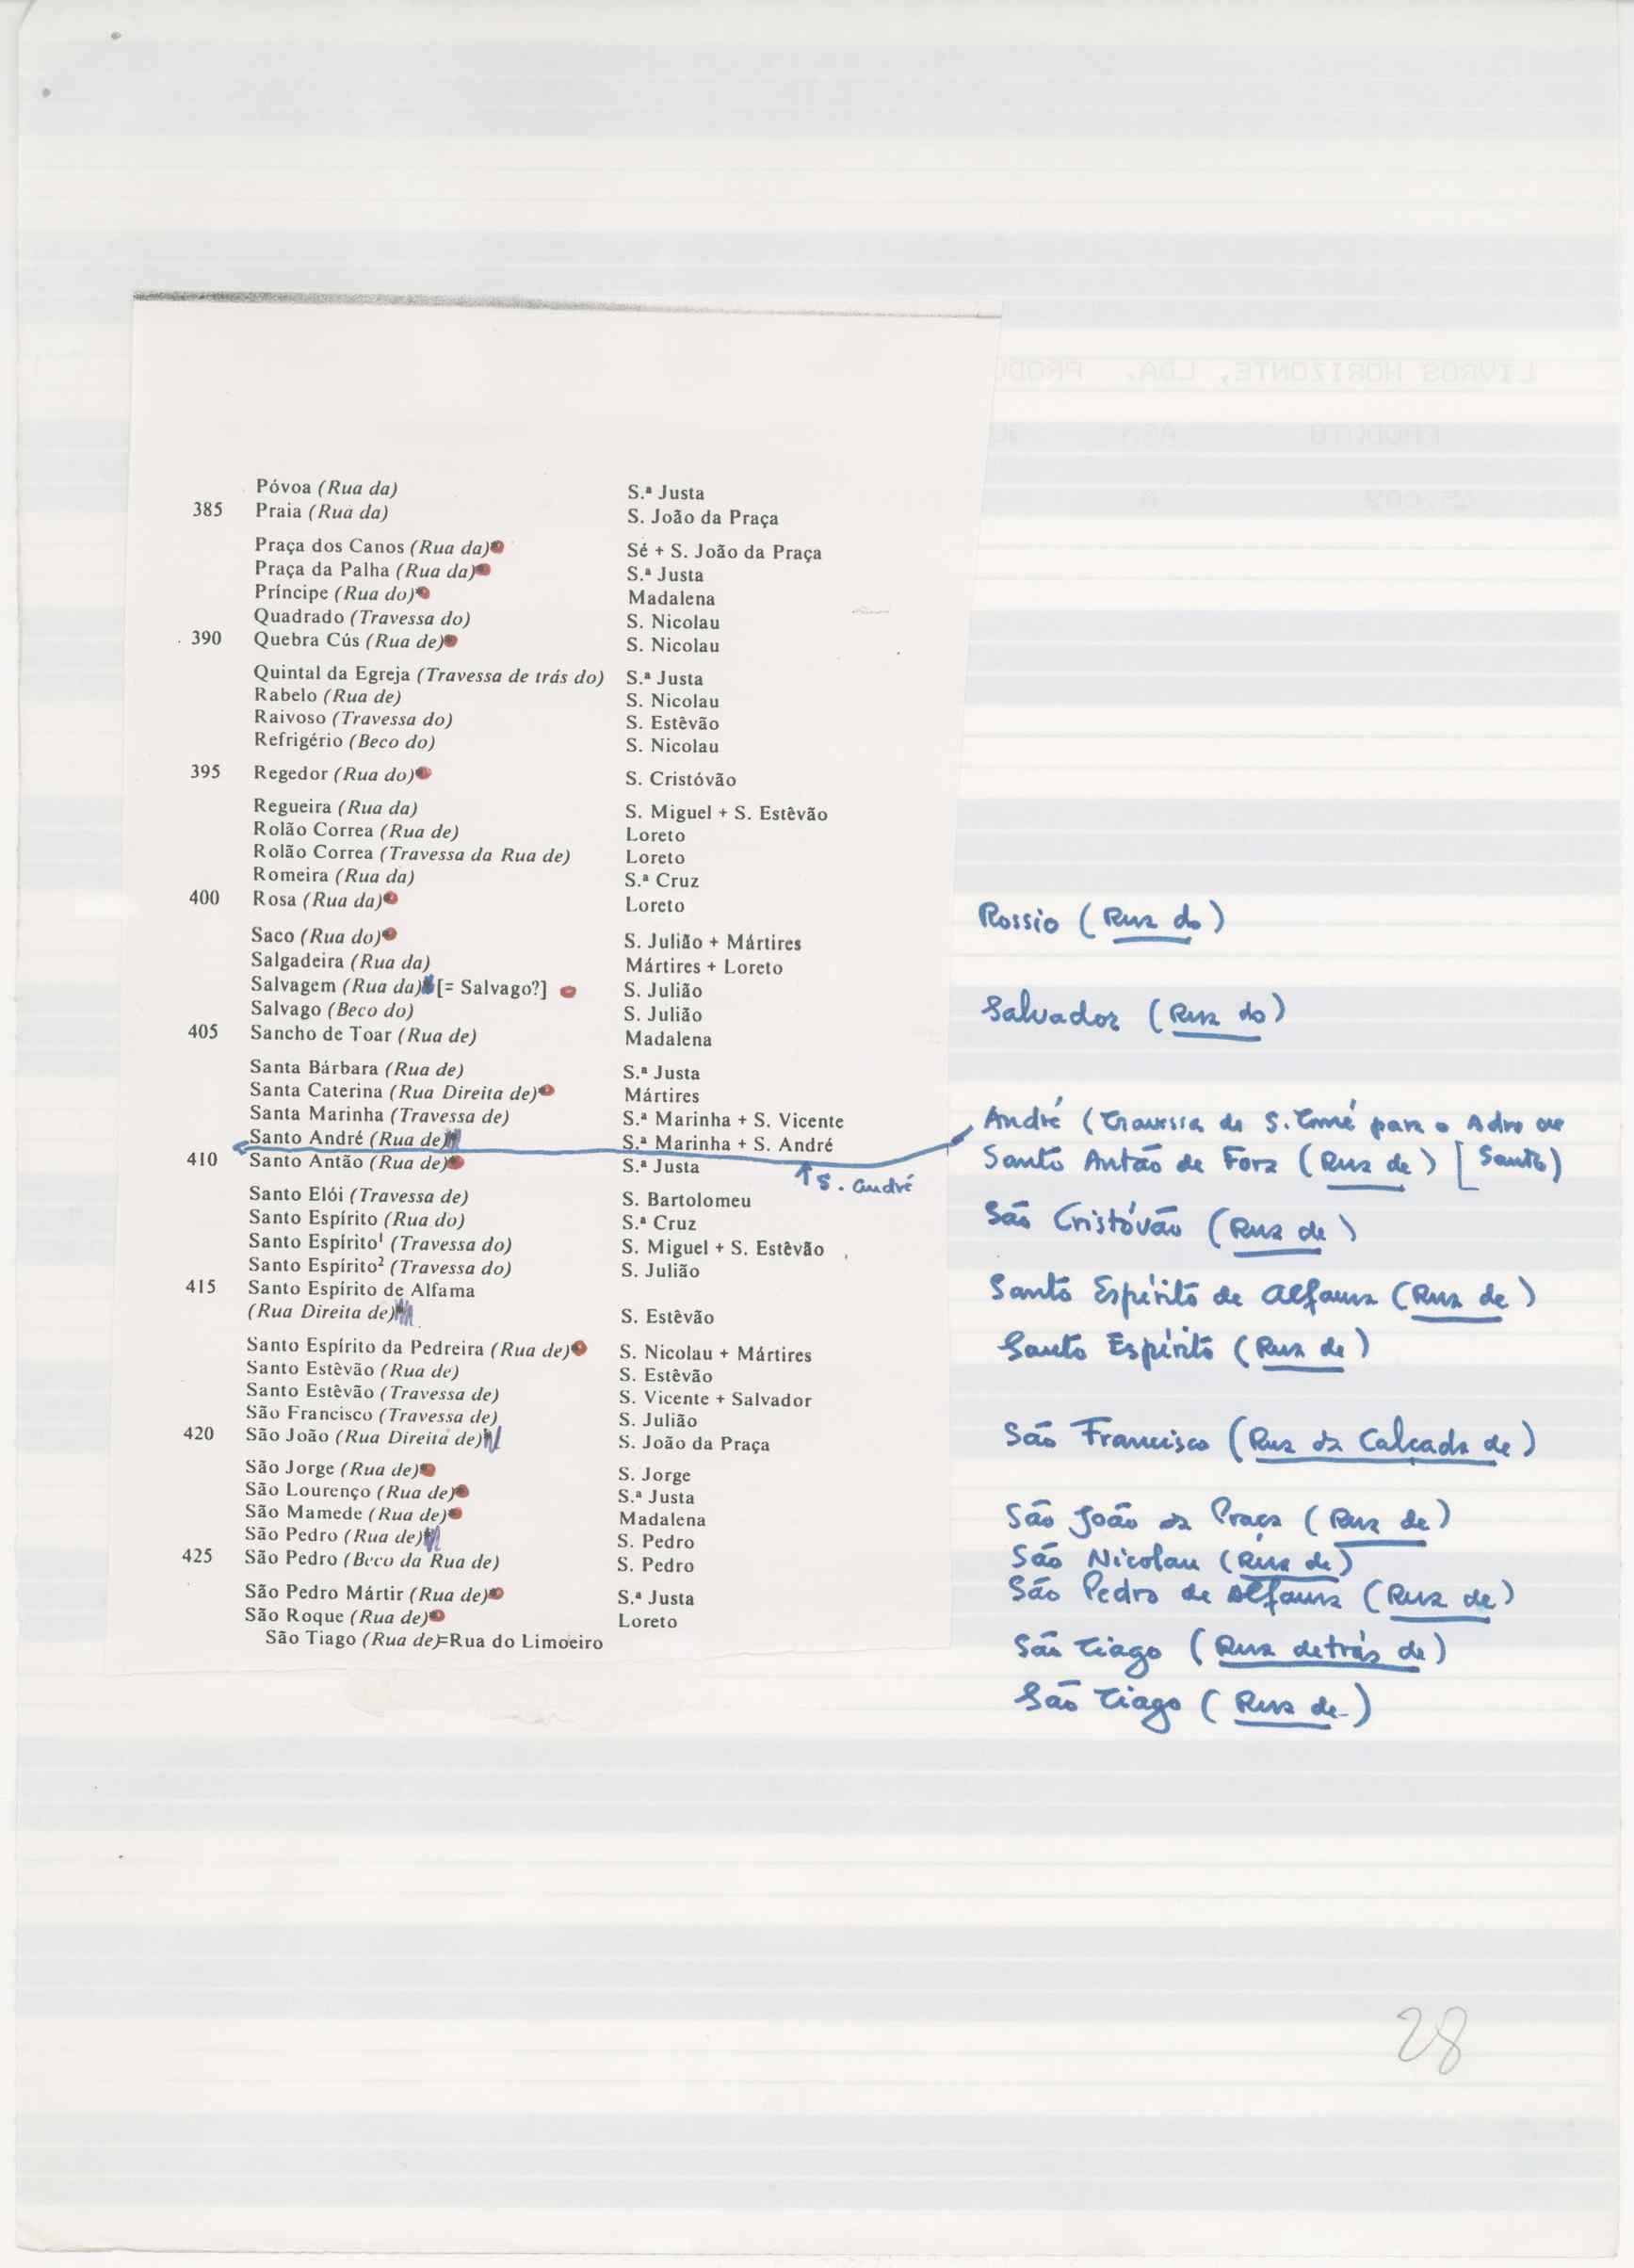 LIVROS HORIZONTE, LDA. PRODU
PRODUTO
Póvoa (Rua da) S.ª Justa
385 Praia (Rua da) S. João da Praça
Praça dos Canos (Rua da) Sé + S. João da Praça
Praça da Palha (Rua da) S.ª Justa
Príncipe (Rua do) Madalena
Quadrado (Travessa do) S. Nicolau
390 Quebra Cús (Rua de) S. Nicolau
Quintal da Egreja (Travessa de trás do) S.ª Justa
Rabelo (Rua de) S. Nicolau
Raivoso (Travessa do) S. Estêvão
Refrigério (Beco do) S. Nicolau
395 Regedor (Rua do) S. Cristóvão
Regueira (Rua da) S. Miguel + S. Estêvão
Rolão Correa (Rua de) Loreto
Rolão Correa (Travessa da Rua de) Loreto
Romeira (Rua da) S.ª Cruz
400 Rosa (Rua da) Loreto
Rossio (Rua do)
Saco (Rua do) S. Julião + Mártires
Salgadeira (Rua da) Mártires + Loreto
Salvagem (Rua da) [= Salvago?] S. Julião
Salvago (Beco do) S. Julião
Salvador (Rua do)
405 Sancho de Toar (Rua de) Madalena
Santa Bárbara (Rua de) S.ª Justa
Santa Caterina (Rua Direita de) Mártires
Santa Marinha (Travessa de) S.ª Marinha + S. Vicente
André (Travessa de S. Tomé para o Adro de
Santo André (Rua de) S.ª Marinha + S. André
410 Santo Antão (Rua de) S.ª Justa
Santo Antão de Fora (Rua de) [Santo)
S. André
Santo Elói (Travessa de) S. Bartolomeu
Santo Espírito (Rua do) S.ª Cruz
São Cristóvão (Rua de)
Santo Espírito¹ (Travessa do) S. Miguel + S. Estêvão
Santo Espírito² (Travessa do) S. Julião
415 Santo Espírito de Alfama
(Rua Direita de) S. Estêvão
Santo Espírito de Alfama (Rua de)
Santo Espírito da Pedreira (Rua de) S. Nicolau + Mártires
Santo Espírito (Rua de)
Santo Estêvão (Rua de) S. Estêvão
Santo Estêvão (Travessa de) S. Vicente + Salvador
São Francisco (Travessa de) S. Julião
420 São João (Rua Direita de) S. João da Praça
São Francisco (Rua da Calçada de)
São Jorge (Rua de) S. Jorge
São Lourenço (Rua de) S.ª Justa
São Mamede (Rua de) Madalena
São João da Praça (Rua de)
São Pedro (Rua de) S. Pedro
425 São Pedro (Beco da Rua de) S. Pedro
São Nicolau (Rua de)
São Pedro Mártir (Rua de) S.ª Justa
São Pedro de Alfama (Rua de)
São Roque (Rua de) Loreto
São Tiago (Rua de)=Rua do Limoeiro
São Tiago (Rua detrás de)
São Tiago (Rua de)
28